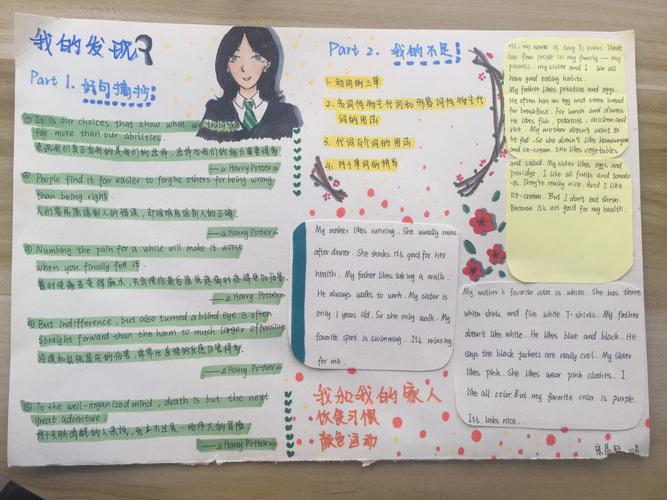 我的发现
Part 1. 好句摘抄
① It is our choices that show what we truly are,
far more than our abilities.
——《Harry Potter》
② People find it far easier to forgive others for being wrong
than being right.
人们容易原谅别人的错误,却很难原谅别人的正确.
——《Harry Potter》
③ Numbing the pain for a while will make it worse
when you finally feel it.
——《Harry Potter》
④ But indifference, but also turned a blind eye is often
straight forward than the harm to much larger offensive
——《Harry Potter》
⑤ To the well-organized mind, death is but the next
great adventure.
——《Harry Potter》
Part 2. 我的不足
1. 动词的三单
2. 名词性物主代词和形容词性物主代
词的用法
3. 代词与冠词的用法
4. 对于单词的拼写
Hi, my name is Song Yi. There
are four people in my family — my
parents, my sister and I. We all
have good eating habits.
My father likes potatoes and eggs.
He often has an egg and some bread
for breakfast. For lunch and dinner,
he likes fish, potatoes, chicken and
rice. My mother doesn't want to
be fat. So she doesn't like hamburgers
and ice-cream. She likes vegetables
and salad. My sister likes eggs and
porridge. I like all fruits and tomato-
es. They're really nice. And I like
ice-cream. But I don't eat them.
Because it's not good for my health.
My mother likes running. She usually runs
after dinner. She thinks it's good for her
health. My father likes taking a walk.
He always walks to work. My sister is
only 1 years old. So she only walk. My
favorite sport is swimming. It's relaxing
for me.
My mother's favorite color is white. She has three
white skirts and five white T-shirts. My father
doesn't like white. He likes blue and black. He
says the black jackets are really cool. My sister
likes pink. She likes wear pink clothes. I
like all color. But my favorite color is purple.
It looks nice.
我和我的家人
饮食习惯
颜色运动